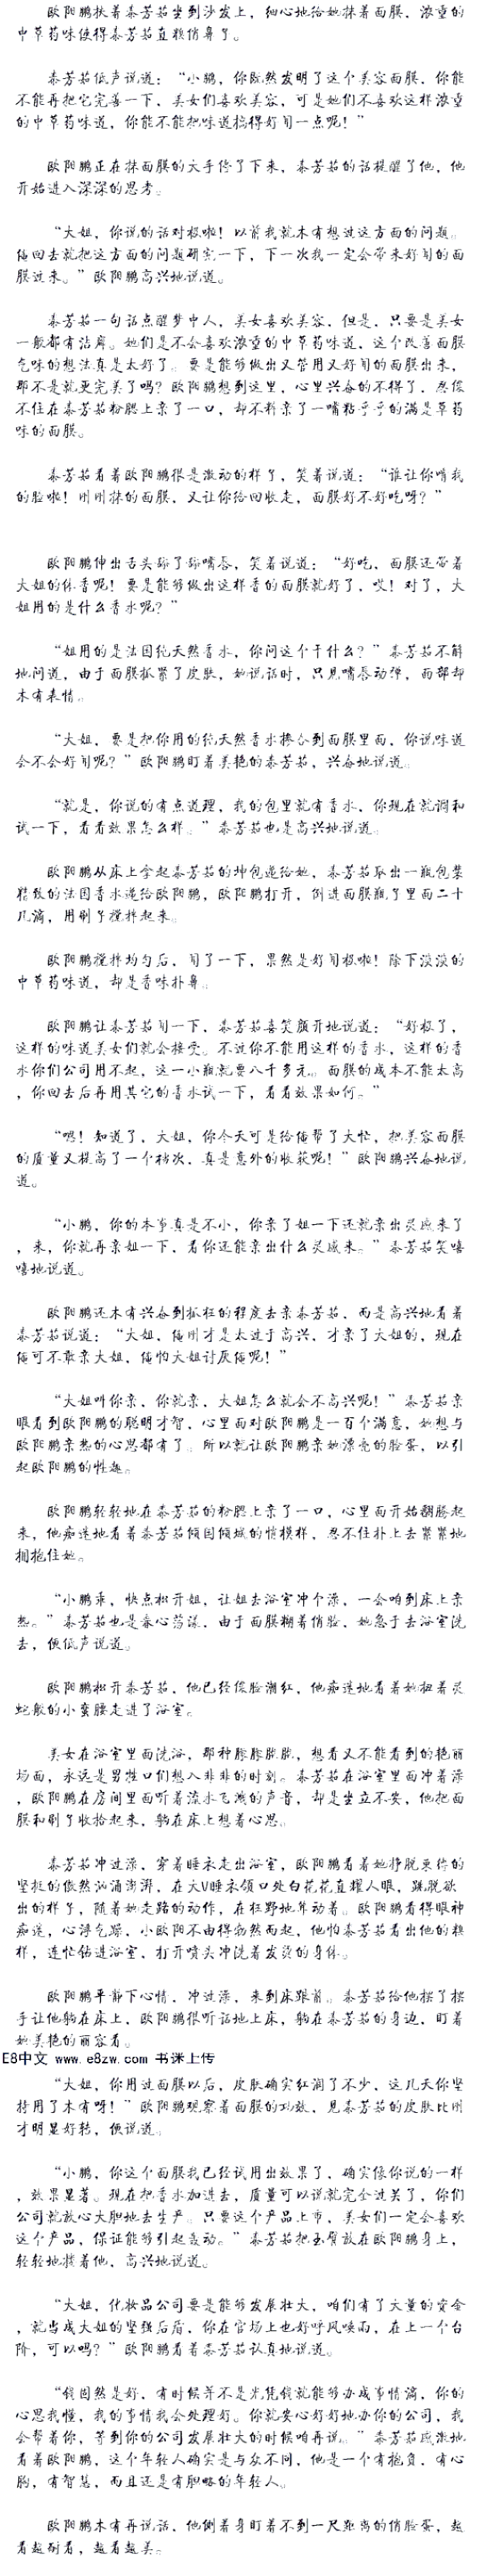 欧阳鹏扶着秦芳茹坐到沙发上，细心地给她抹着面膜，浓重的
中草药味使得秦芳茹直颦俏鼻了。
秦芳茹低声说道：“小鹏，你既然发明了这个美容面膜，你能
不能再把它完善一下，美女们喜欢美容，可是她们不喜欢这样浓重
的中草药味道，你能不能把味道搞得好闻一点呢！”
欧阳鹏正在抹面膜的大手停了下来，秦芳茹的话提醒了他，他
开始进入深深的思考。
“大姐，你说的话对极啦！以前我就木有想过这方面的问题。
俺回去就把这方面的问题研究一下，下一次我一定会带来好闻的面
膜过来。”欧阳鹏高兴地说道。
秦芳茹一句话点醒梦中人，美女喜欢美容，但是，只要是美女
一般都有洁癖。她们是不会喜欢浓重的中草药味道，这个改善面膜
气味的想法真是太好了。要是能够做出又管用又好闻的面膜出来，
那不是就更完美了吗？欧阳鹏想到这里，心里兴奋的不得了，忍俊
不住在秦芳茹粉腮上亲了一口，却不料亲了一嘴粘乎乎的满是草药
味的面膜。
秦芳茹看着欧阳鹏很是激动的样子，笑着说道：“谁让你啃我
的脸啦！刚刚抹的面膜，又让你给回收走，面膜好不好吃呀？”
欧阳鹏伸出舌头舔了舔嘴唇，笑着说道：“好吃，面膜还带着
大姐的体香呢！要是能够做出这样香的面膜就好了，哎！对了，大
姐用的是什么香水呢？”
“姐用的是法国纯天然香水，你问这个干什么？”秦芳茹不解
地问道，由于面膜抓紧了皮肤，她说话时，只见嘴唇动弹，面部却
木有表情。
“大姐，要是把你用的纯天然香水掺合到面膜里面，你说味道
会不会好闻呢？”欧阳鹏盯着美艳的秦芳茹，兴奋地说道。
“就是，你说的有点道理，我的包里就有香水，你现在就调和
试一下，看看效果怎么样。”秦芳茹也是高兴地说道。
欧阳鹏从床上拿起秦芳茹的坤包递给她，秦芳茹取出一瓶包装
精致的法国香水递给欧阳鹏，欧阳鹏打开，倒进面膜瓶子里面二十
几滴，用刷子搅拌起来。
欧阳鹏搅拌均匀后，闻了一下，果然是好闻极啦！除下淡淡的
中草药味道，却是香味扑鼻。
欧阳鹏让秦芳茹闻一下，秦芳茹喜笑颜开地说道：“好极了，
这样的味道美女们就会接受。不过你不能用这样的香水，这样的香
水你们公司用不起，这一小瓶就要八千多元。面膜的成本不能太高
，你回去后再用其它的香水试一下，看看效果如何。”
“嗯！知道了，大姐，你今天可是给俺帮了大忙，把美容面膜
的质量又提高了一个档次，真是意外的收获呢！”欧阳鹏兴奋地说
道。
“小鹏，你的本事真是不小，你亲了姐一下还就亲出灵感来了
，来，你就再亲姐一下，看你还能亲出什么灵感来。”秦芳茹笑嘻
嘻地说道。
欧阳鹏还木有兴奋到抓狂的程度去亲秦芳茹，而是高兴地看着
秦芳茹说道：“大姐，俺刚才是太过于高兴，才亲了大姐的，现在
俺可不敢亲大姐，俺怕大姐讨厌俺呢！”
“大姐叫你亲，你就亲，大姐怎么就会不高兴呢！”秦芳茹亲
眼看到欧阳鹏的聪明才智，心里面对欧阳鹏是一百个满意，她想与
欧阳鹏亲热的心思都有了。所以就让欧阳鹏亲她漂亮的脸蛋，以引
起欧阳鹏的性趣。
欧阳鹏轻轻地在秦芳茹的粉腮上亲了一口，心里面开始翻腾起
来，他痴迷地看着秦芳茹倾国倾城的情模样，忍不住扑上去紧紧地
拥抱住她。
“小鹏乖，快点松开姐，让姐去浴室冲个澡，一会咱到床上亲
热。”秦芳茹也是春心荡漾，由于面膜糊着俏脸，她急于去浴室洗
去，便低声说道。
欧阳鹏松开秦芳茹，他已经俊脸潮红，他痴迷地看着她扭着灵
蛇般的小蛮腰走进了浴室。
美女在浴室里面洗浴，那种朦朦胧胧，想看又不能看到的艳丽
场面，永远是男性口们想入非非的时刻。秦芳茹在浴室里面冲着澡
，欧阳鹏在房间里面听着流水飞溅的声音，却是坐立不安，他把面
膜和刷子收拾起来，躺在床上想着心思。
秦芳茹冲过澡，穿着睡衣走出浴室，欧阳鹏看着她挣脱束缚的
坚挺的傲然汹涌澎湃，在大V睡衣领口处白花花直耀人眼，跳脱欲
出的样子，随着她走路的动作，在狂野地耸动着。欧阳鹏看得眼神
痴迷，心浮气躁，小欧阳不由得勃然而起，他怕秦芳茹看出他的糗
样，连忙钻进浴室，打开喷头冲洗着发烫的身体。
欧阳鹏平静下心情，冲过澡，来到床跟前。秦芳茹给他摆了摆
手让他躺在床上，欧阳鹏很听话地上床，躺在秦芳茹的身边，盯着
她美艳的丽容看。
E8中文 www.e8zw.com 书迷上传
“大姐，你用过面膜以后，皮肤确实红润了不少，这几天你坚
持用了木有呀！”欧阳鹏观察着面膜的功效，见秦芳茹的皮肤比刚
才明显好转，便说道。
“小鹏，你这个面膜我已经试用出效果了，确实像你说的一样
，效果显著。现在把香水加进去，质量可以说就完全过关了，你们
公司就放心大胆地去生产。只要这个产品上市，美女们一定会喜欢
这个产品，保证能够引起轰动。”秦芳茹把玉臂放在欧阳鹏身上，
轻轻地搂着他，高兴地说道。
“大姐，化妆品公司要是能够发展壮大，咱们有了大量的资金
，就当成大姐的坚强后盾，你在官场上也好呼风唤雨，在上一个台
阶，可以吗？”欧阳鹏看着秦芳茹认真地说道。
“钱固然是好，有时候并不是光凭钱就能够办成事情滴，你的
心思我懂，我的事情我会处理好。你就安心好好地办你的公司，我
会帮着你，等到你的公司发展壮大的时候咱再说。”秦芳茹感激地
看着欧阳鹏，这个年轻人确实是与众不同，他是一个有抱负，有心
胸，有智慧，而且还是有胆略的年轻人。
欧阳鹏木有再说话，他侧着身盯着不到一尺距离的俏脸蛋，越
看越耐看，越看越美。